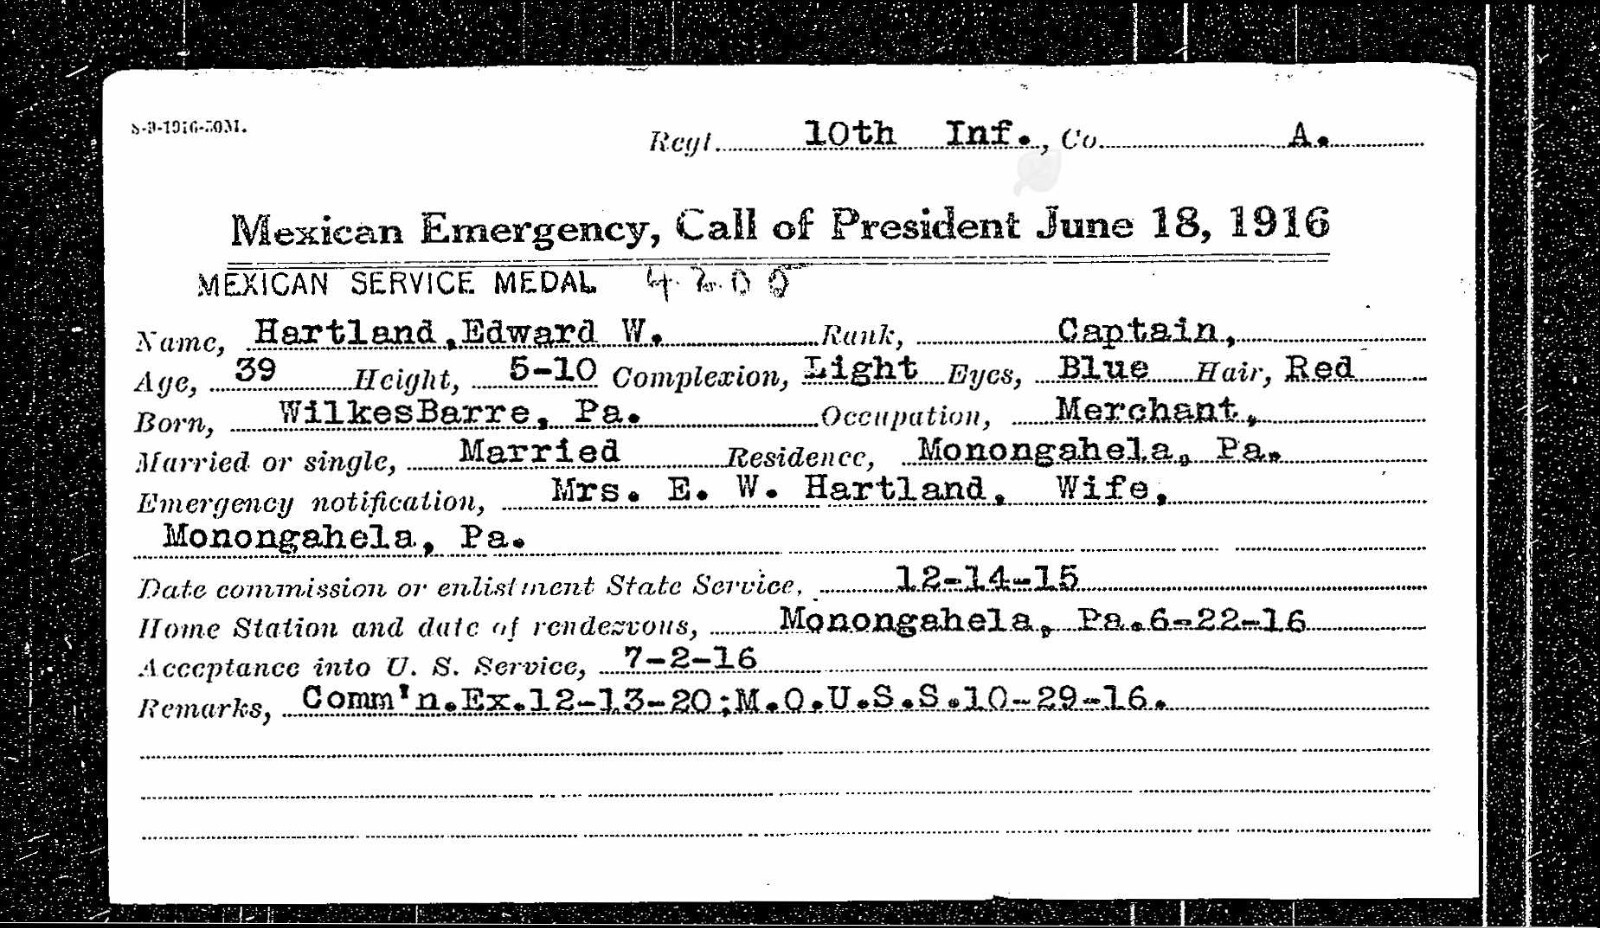 S-9-1916-50M.
Regt. 10th Inf., Co. A.
Mexican Emergency, Call of President June 18, 1916
MEXICAN SERVICE MEDAL
Name, Hartland, Edward W. Rank, Captain,
Age, 39 Height, 5-10 Complexion, Light Eyes, Blue Hair, Red
Born, WilkesBarre, Pa. Occupation, Merchant,
Married or single, Married Residence, Monongahela, Pa.
Emergency notification, Mrs. E. W. Hartland, Wife,
Monongahela, Pa.
Date commission or enlistment State Service, 12-14-15
Home Station and date of rendezvous, Monongahela, Pa.6-22-16
Acceptance into U. S. Service, 7-2-16
Remarks, Comm'n.Ex.12-13-20;M.O.U.S.S.10-29-16.